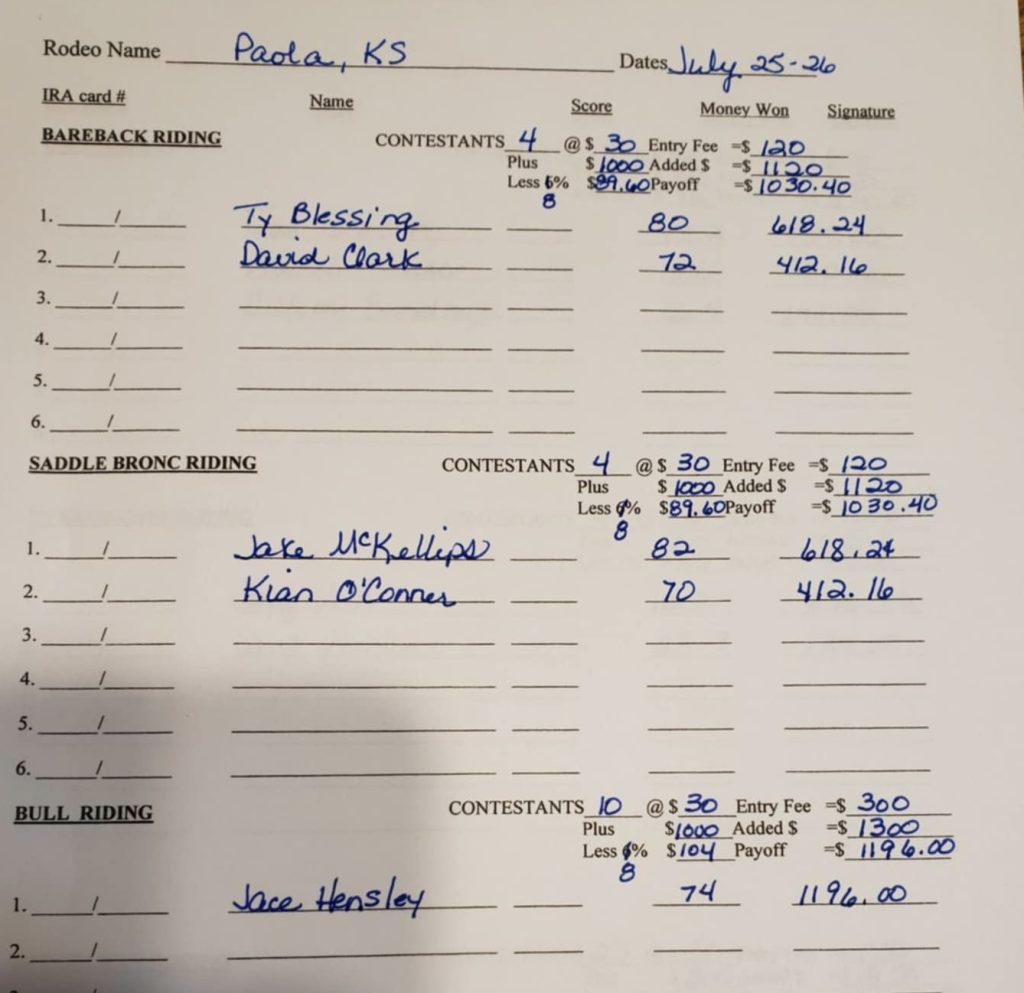 Rodeo Name Paola, KS Dates July 25-26
IRA card # Name Score Money Won Signature
BAREBACK RIDING CONTESTANTS 4 @ $ 30 Entry Fee =$ 120
Plus $ 1000 Added $ =$ 1120
Less 6% $89.60 Payoff =$ 1030.40
8
1. / Ty Blessing 80 618.24
2. / David Clark 72 412.16
3. /
4. /
5. /
6. /
SADDLE BRONC RIDING CONTESTANTS 4 @ $ 30 Entry Fee =$ 120
Plus $ 1000 Added $ =$ 1120
Less 6% $89.60 Payoff =$ 1030.40
8
1. / Jake McKellips 82 618.24
2. / Kian O'Conner 70 412.16
3. /
4. /
5. /
6. /
BULL RIDING CONTESTANTS 10 @ $ 30 Entry Fee =$ 300
Plus $1000 Added $ =$ 1300
Less 6% $104 Payoff =$ 1196.00
8
1. / Jace Hensley 74 1196.00
2. /